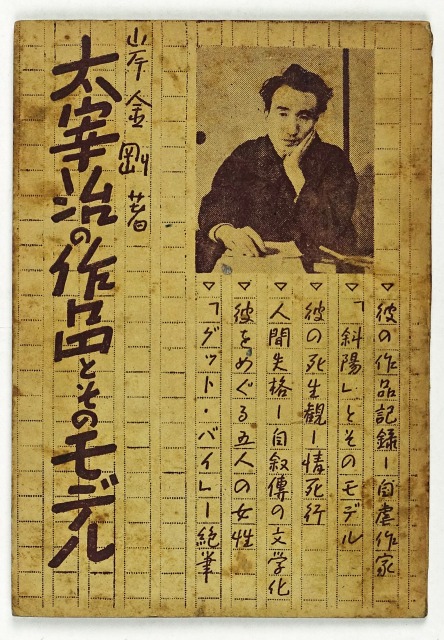 ▽彼の作品記録ー自虐作家
▽「斜陽」とそのモデル
▽彼の死生観ー情死行
▽人間失格ー自叙傳の文学化
▽彼をめぐる五人の女性
▽「グット・バイ」ー絶筆
岸金剛著
太宰治の作品とそのモデル